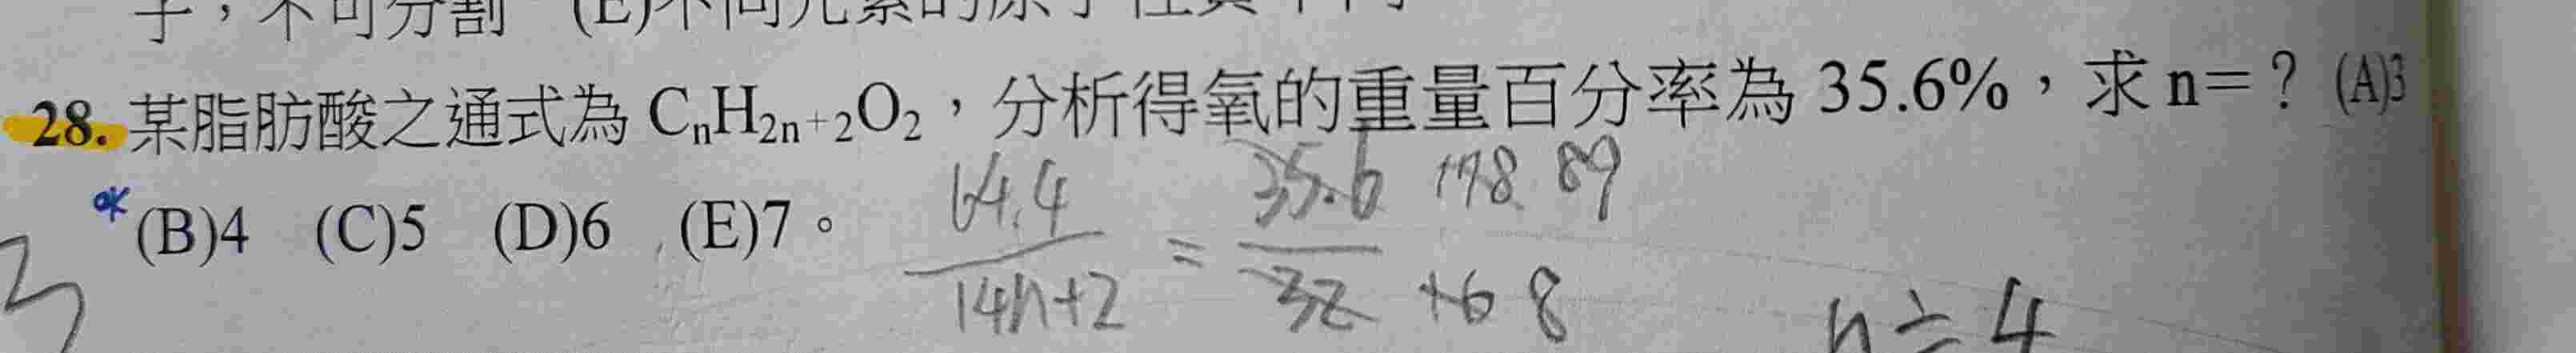 子，不可分割 (E)不同元素的原子性質不同
28. 某脂肪酸之通式為 CₙH₂ₙ₊₂O₂，分析得氧的重量百分率為 35.6%，求 n=？ (A)3
(B)4 (C)5 (D)6 (E)7。
64.4/14n+2 = 35.6/32 178 89
16 8
n≒4
3